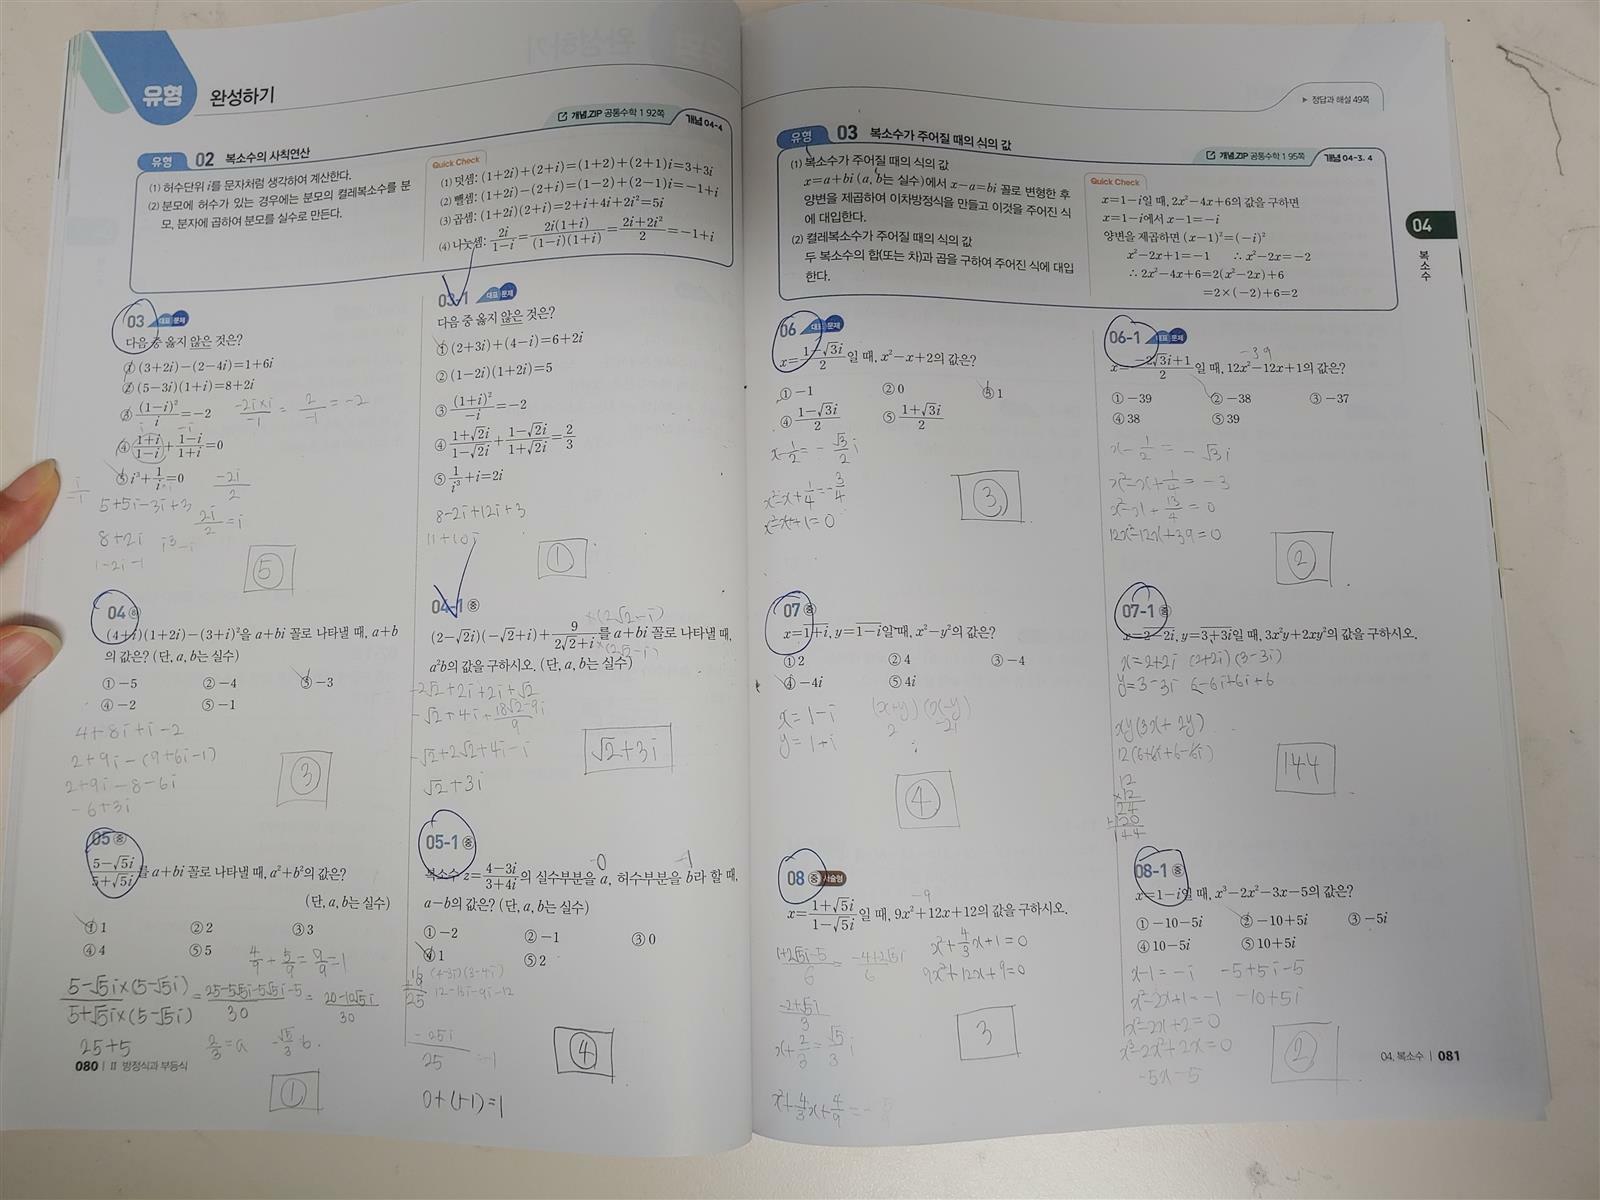 유형 완성하기
개념.ZIP 공통수학 1 92쪽 개념 04-4
유형 02 복소수의 사칙연산
(1) 허수단위 i를 문자처럼 생각하여 계산한다.
(2) 분모에 허수가 있는 경우에는 분모의 켤레복소수를 분
모, 분자에 곱하여 분모를 실수로 만든다.
Quick Check
(1) 덧셈: (1+2i)+(2+i)=(1+2)+(2+1)i=3+3i
(2) 뺄셈: (1+2i)-(2+i)=(1-2)+(2-1)i=-1+i
(3) 곱셈: (1+2i)(2+i)=2+i+4i+2i²=5i
(4) 나눗셈: 2i/(1-i)=2i(1+i)/((1-i)(1+i))=(2i+2i²)/2=-1+i
03 대표 문제
다음 중 옳지 않은 것은?
① (3+2i)-(2-4i)=1+6i
② (5-3i)(1+i)=8+2i
③ (1-i)²/i=-2
④ (1+i)/(1-i)+(1-i)/(1+i)=0
⑤ i³+1/i=0
-2i×i/-1 = 2/-1 = -2
-2i/2
5+5i-3i+3
2i/2=i
8+2i
1-2i-1
⑤
03-1 대표 문제
다음 중 옳지 않은 것은?
① (2+3i)+(4-i)=6+2i
② (1-2i)(1+2i)=5
③ (1+i)²/-i=-2
④ (1+√2i)/(1-√2i)+(1-√2i)/(1+√2i)=2/3
⑤ 1/i³+i=2i
8-2i+12i+3
11+10i
①
04 중
(4+i)(1+2i)-(3+i)²을 a+bi 꼴로 나타낼 때, a+b
의 값은? (단, a, b는 실수)
① -5 ② -4 ③ -3
④ -2 ⑤ -1
4+8i+i-2
2+9i-(9+6i-1)
2+9i-8-6i
-6+3i
③
04-1 중
(2-√2i)(-√2+i)+9/(2√2+i)를 a+bi 꼴로 나타낼 때,
×(2√2-i)
×(2√2-i)
a²b의 값을 구하시오. (단, a, b는 실수)
-2√2+2i+2i+√2
-√2+4i+(18√2-9i)/9
-√2+2√2+4i-i
√2+3i
√2+3i
05 중
(5-√5i)/(5+√5i)를 a+bi 꼴로 나타낼 때, a²+b²의 값은?
(단, a, b는 실수)
① 1 ② 2 ③ 3
④ 4 ⑤ 5
4/9+5/9=9/9=1
5-√5i×(5-√5i)/5+√5i×(5-√5i)=25-5√5i-5√5i-5/30=20-10√5i/30
25+5
2/3=a -√5/3 b
①
05-1 중
복소수 z=(4-3i)/(3+4i)의 실수부분을 a, 허수부분을 b라 할 때,
0 -1
a-b의 값은? (단, a, b는 실수)
① -2 ② -1 ③ 0
④ 1 ⑤ 2
(4-3i)(3-4i)
25
-25i/25 -1
0+(+1)=1
④
080 | Ⅱ 방정식과 부등식
▶ 정답과 해설 49쪽
유형 03 복소수가 주어질 때의 식의 값
개념.ZIP 공통수학 1 95쪽 개념 04-3, 4
(1) 복소수가 주어질 때의 식의 값
x=a+bi (a, b는 실수)에서 x-a=bi 꼴로 변형한 후
양변을 제곱하여 이차방정식을 만들고 이것을 주어진 식
에 대입한다.
(2) 켤레복소수가 주어질 때의 식의 값
두 복소수의 합(또는 차)과 곱을 구하여 주어진 식에 대입
한다.
Quick Check
x=1-i일 때, 2x²-4x+6의 값을 구하면
x=1-i에서 x-1=-i
양변을 제곱하면 (x-1)²=(-i)²
x²-2x+1=-1 ∴ x²-2x=-2
∴ 2x²-4x+6=2(x²-2x)+6
=2×(-2)+6=2
04
복소수
06 대표 문제
x=(1-√3i)/2일 때, x²-x+2의 값은?
① -1 ② 0 ③ 1
④ (1-√3i)/2 ⑤ (1+√3i)/2
x-1/2=-√3/2 i
x²-x+1/4=-3/4
x²-x+1=0
③
06-1 대표 문제
x=(-2√3i+1)/2일 때, 12x²-12x+1의 값은?
-39
① -39 ② -38 ③ -37
④ 38 ⑤ 39
x-1/2=-√3i
x²-x+1/4=-3
x²-x+13/4=0
12x²-12x+39=0
②
07 중
x=1+i, y=1-i일 때, x²-y²의 값은?
① 2 ② 4 ③ -4
④ -4i ⑤ 4i
x=1-i
y=1+i
(x+y)(x-y)
2 -2i
④
07-1 중
x=2-2i, y=3+3i일 때, 3x²y+2xy²의 값을 구하시오.
x=2+2i (2+2i)(3-3i)
y=3-3i 6-6i+6i+6
xy(3x+2y)
12(6+6i+6-6i)
12
×12
24
+120
144
144
08 중 서술형
x=(1+√5i)/(1-√5i)일 때, 9x²+12x+12의 값을 구하시오.
-9
1+2√5i-5/6=-4+2√5i/6
x²+4/3x+1=0
9x²+12x+9=0
-2+√5i/3
x+2/3=√5/3 i
x²+4/3x+4/9=-5/9
3
08-1 중
x=1-i일 때, x³-2x²-3x-5의 값은?
① -10-5i ② -10+5i ③ -5i
④ 10-5i ⑤ 10+5i
x-1=-i -5+5i-5
x²-2x+1=-1 -10+5i
x²-2x+2=0
x³-2x²+2x=0
-5x-5
②
04. 복소수 | 081